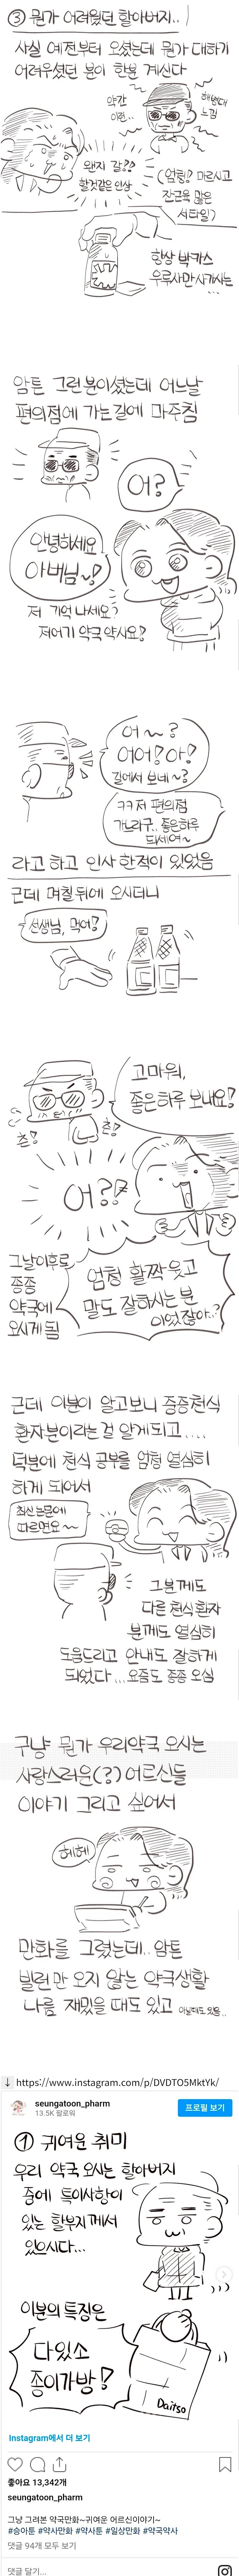 ③ 뭔가 어려웠던 할아버지..
사실 예전부터 오셨는데 뭔가 대하기
어려우셨던 분이 한분 계신다
약간
이런..
해병대
느낌
왠지 감??
할것같은 인상
(엄청! 마르시고
잔근육 많은
스타일)
항상 박카스
우루사만 사가시는...
암튼 그런 분이셨는데 어느날
편의점에 가는 길에 마주침
어?
안녕하세요
아버님~!
저 기억 나세요?
저어기 약국 약사요!
어~?
어어! 아!
길에서 보네~?
ㅋㅋ 저 편의점
가느라구.. 좋은하루
되세여~
라고 하고 인사 한적이 있었음
근데 며칠 뒤에 오시더니
선생님, 먹어!
고마워,
좋은하루 보내요!
츤!
츤!
어??
그날이후로
종종
약국에
오시게 됨
엄청 활짝 웃고
말도 잘하시는 분
이었잖아..?
근데 이분이 알고보니 중증천식
환자분이라는 걸 알게되고....
덕분에 천식 공부를 엄청 열심히
하게 되어서
최신논문에
따르면요~~
그분께도
다른 천식환자
분께도 열심히
도움드리고 안내도 잘하게
되었다... 요즘도 종종 오심
구냥 뭔가 우리약국 오시는
사랑스러운(?) 어르신들
이야기 그리고 싶어서
헤헤
만화를 그렸는데.. 암튼
빌런만 오지 않는 약국생활
나름 재밌을 때도 있고 아닐때도 있음..
↓ https://www.instagram.com/p/DVDTO5MktYk/
seungatoon_pharm
13.5K 팔로워
프로필 보기
① 귀여운 취미
우리 약국 오시는 할아버지
중에 특이사항이
있는 할부지께서
있으시다...
이분의 특징은
다있소
종이가방!
Daitso
Instagram에서 더 보기
좋아요 13,342개
seungatoon_pharm
그냥 그려본 약국만화~귀여운 어르신이야기~
#승아툰 #약사만화 #약사툰 #일상만화 #약국약사
댓글 94개 모두 보기
댓글 달기...